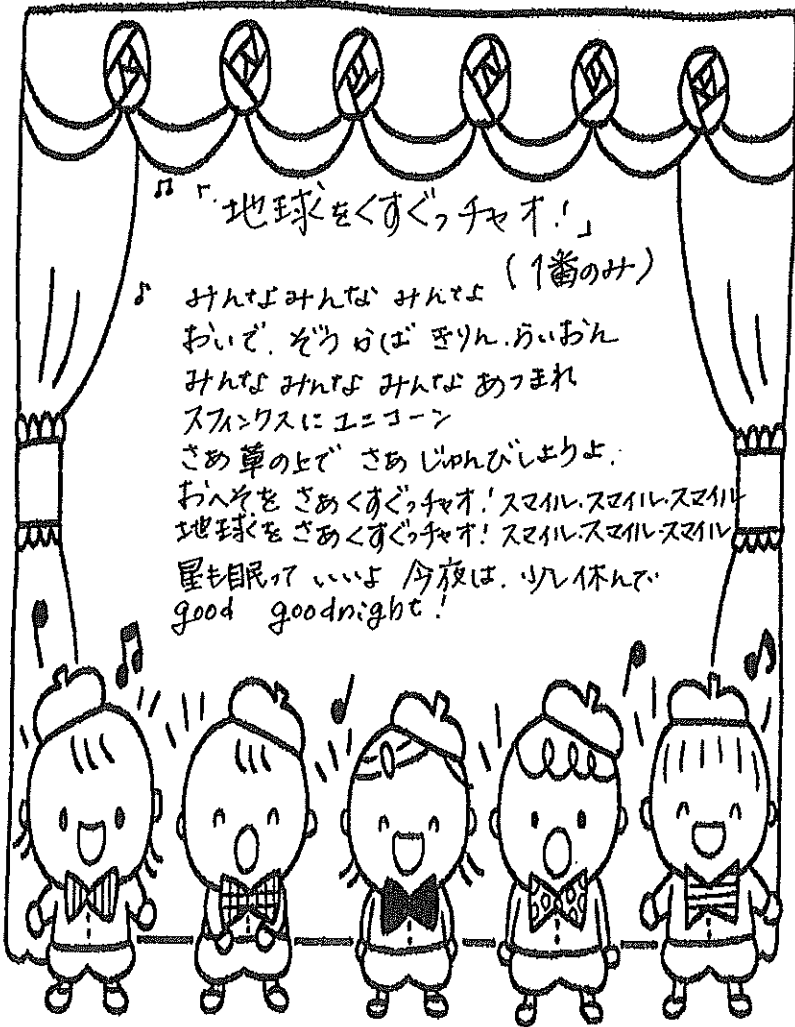 「地球をくすぐっチャオ!」
(1番のみ)
みんなみんな みんな
おいで、ぞう かば きりん、らいおん
みんな みんな みんな あつまれ
スフィンクスに ユニコーン
さあ 草の上で さあ じゅんびしようよ、
おへそを さあくすぐっチャオ! スマイル・スマイル・スマイル
地球を さあくすぐっチャオ! スマイル・スマイル・スマイル
星も眠って いいよ 今夜は、少し休んで
good goodnight!